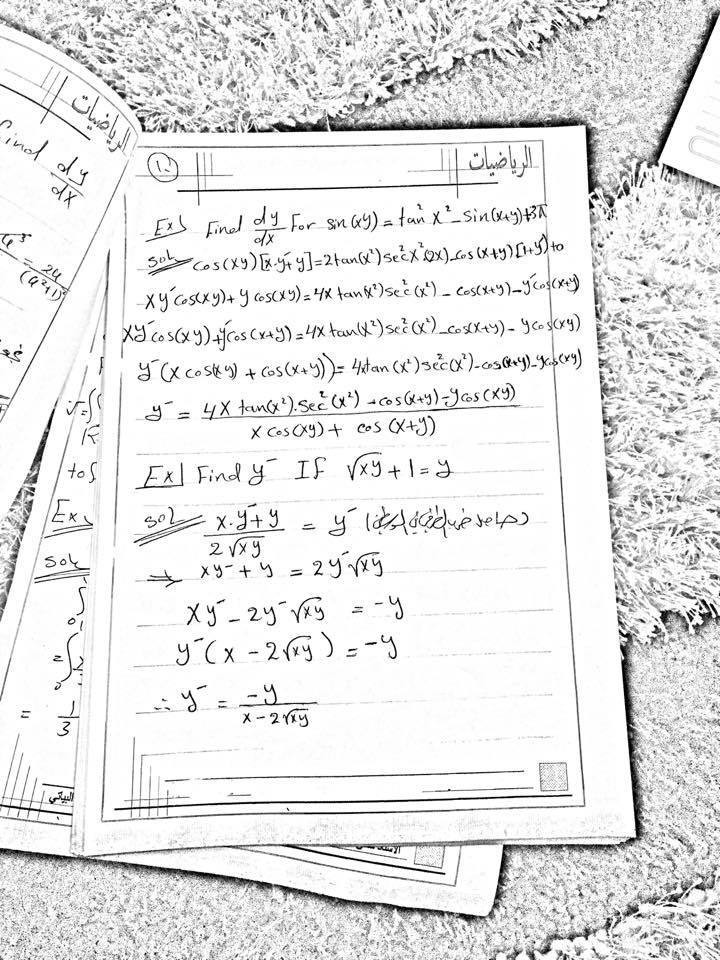 الرياضيات
find dy/dx
= 2u/(u²+1)²
to
Ex
Sol
= 1/3
10
الرياضيات
Ex} Find dy/dx For sin(xy) = tan² x² - sin(x+y)+3π
Sol cos(xy)[x.y⁻+y]=2tan(x²)sec²x²(2x)-cos(x+y)[1+y⁻]+0
xy⁻cos(xy)+ycos(xy)=4x tan(x²)sec²(x²) - cos(x+y)-y⁻cos(x+y)
xy⁻cos(xy)+y⁻cos(x+y)=4x tan(x²)sec²(x²)-cos(x+y) - ycos(xy)
y⁻(x cos(xy) + cos(x+y))=4xtan(x²)sec²(x²)-cos(x+y)-ycos(xy)
y⁻ = 4x tan(x²).sec²(x²) -cos(x+y)-ycos(xy) / x cos(xy) + cos(x+y)
Ex] Find y⁻ If √xy +1=y
Sol x.y⁻+y / 2√xy = y⁻
⇒ xy⁻+y = 2y⁻√xy
xy⁻-2y⁻√xy = -y
y⁻(x - 2√xy) = -y
∴ y⁻ = -y / x-2√xy
البياتي